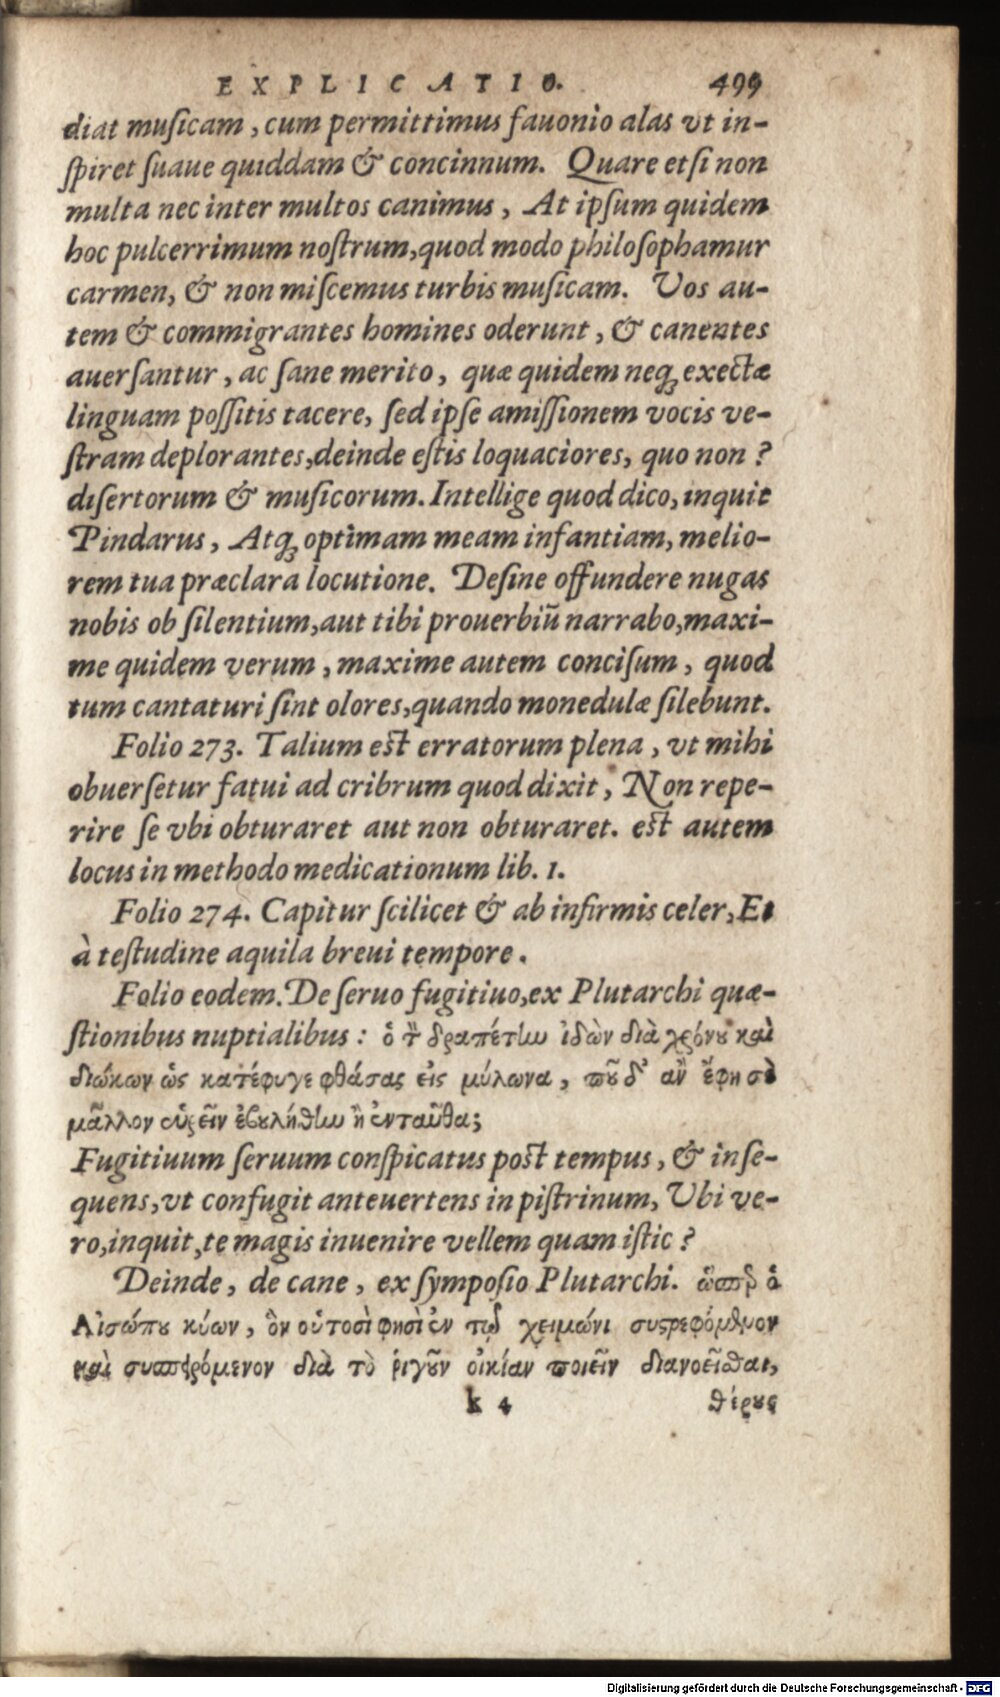 EXPLICATIO. 499
diat muſicam, cum permittimus fauonio alas vt in-
ſpiret ſuaue quiddam & concinnum. Quare etſi non
multa nec inter multos canimus, At ipſum quidem
hoc pulcerrimum noſtrum, quod modo philoſophamur
carmen, & non miſcemus turbis muſicam. Vos au-
tem & commigrantes homines oderunt, & canentes
auerſantur, ac ſane merito, quæ quidem neqꝫ exectæ
linguam poſſitis tacere, ſed ipſe amiſſionem vocis ve-
ſtram deplorantes, deinde eſtis loquaciores, quo non?
diſertorum & muſicorum. Intellige quod dico, inquit
Pindarus, Atqꝫ optimam meam infantiam, melio-
rem tua præclara locutione. Deſine offundere nugas
nobis ob ſilentium, aut tibi prouerbiū narrabo, maxi-
me quidem verum, maxime autem conciſum, quod
tum cantaturi ſint olores, quando monedulæ ſilebunt.
Folio 273. Talium eſt erratorum plena, vt mihi
obuerſetur fatui ad cribrum quod dixit, Non repe-
rire ſe vbi obturaret aut non obturaret. eſt autem
locus in methodo medicationum lib. 1.
Folio 274. Capitur ſcilicet & ab infirmis celer, Et
à teſtudine aquila breui tempore.
Folio eodem. De ſeruo fugitiuo, ex Plutarchi quæ-
ſtionibus nuptialibus: ὁ τὸν δραπέτην ἰδὼν διὰ χρόνου καὶ
διώκων ὡς κατέφυγε φθάσας εἰς μύλωνα, ποῦ δ' ἂν ἔφη σὲ
μᾶλλον εὑρεῖν ἐβουλήθην ἢ ἐνταῦθα;
Fugitiuum ſeruum conſpicatus poſt tempus, & inſe-
quens, vt confugit anteuertens in piſtrinum, Vbi ve-
ro, inquit, te magis inuenire vellem quam iſtic?
Deinde, de cane, ex ſympoſio Plutarchi. ὥσπερ ὁ
Αἰσώπου κύων, ὃν οὑτοσὶ φησὶ ἐν τῷ χειμῶνι συστρεφόμενον
καὶ συσπειρόμενον διὰ τὸ ῥιγοῦν οἰκίαν ποιεῖν διανοεῖσθαι,
k 4 θέρους
Digitalisierung gefördert durch die Deutsche Forschungsgemeinschaft - DFG